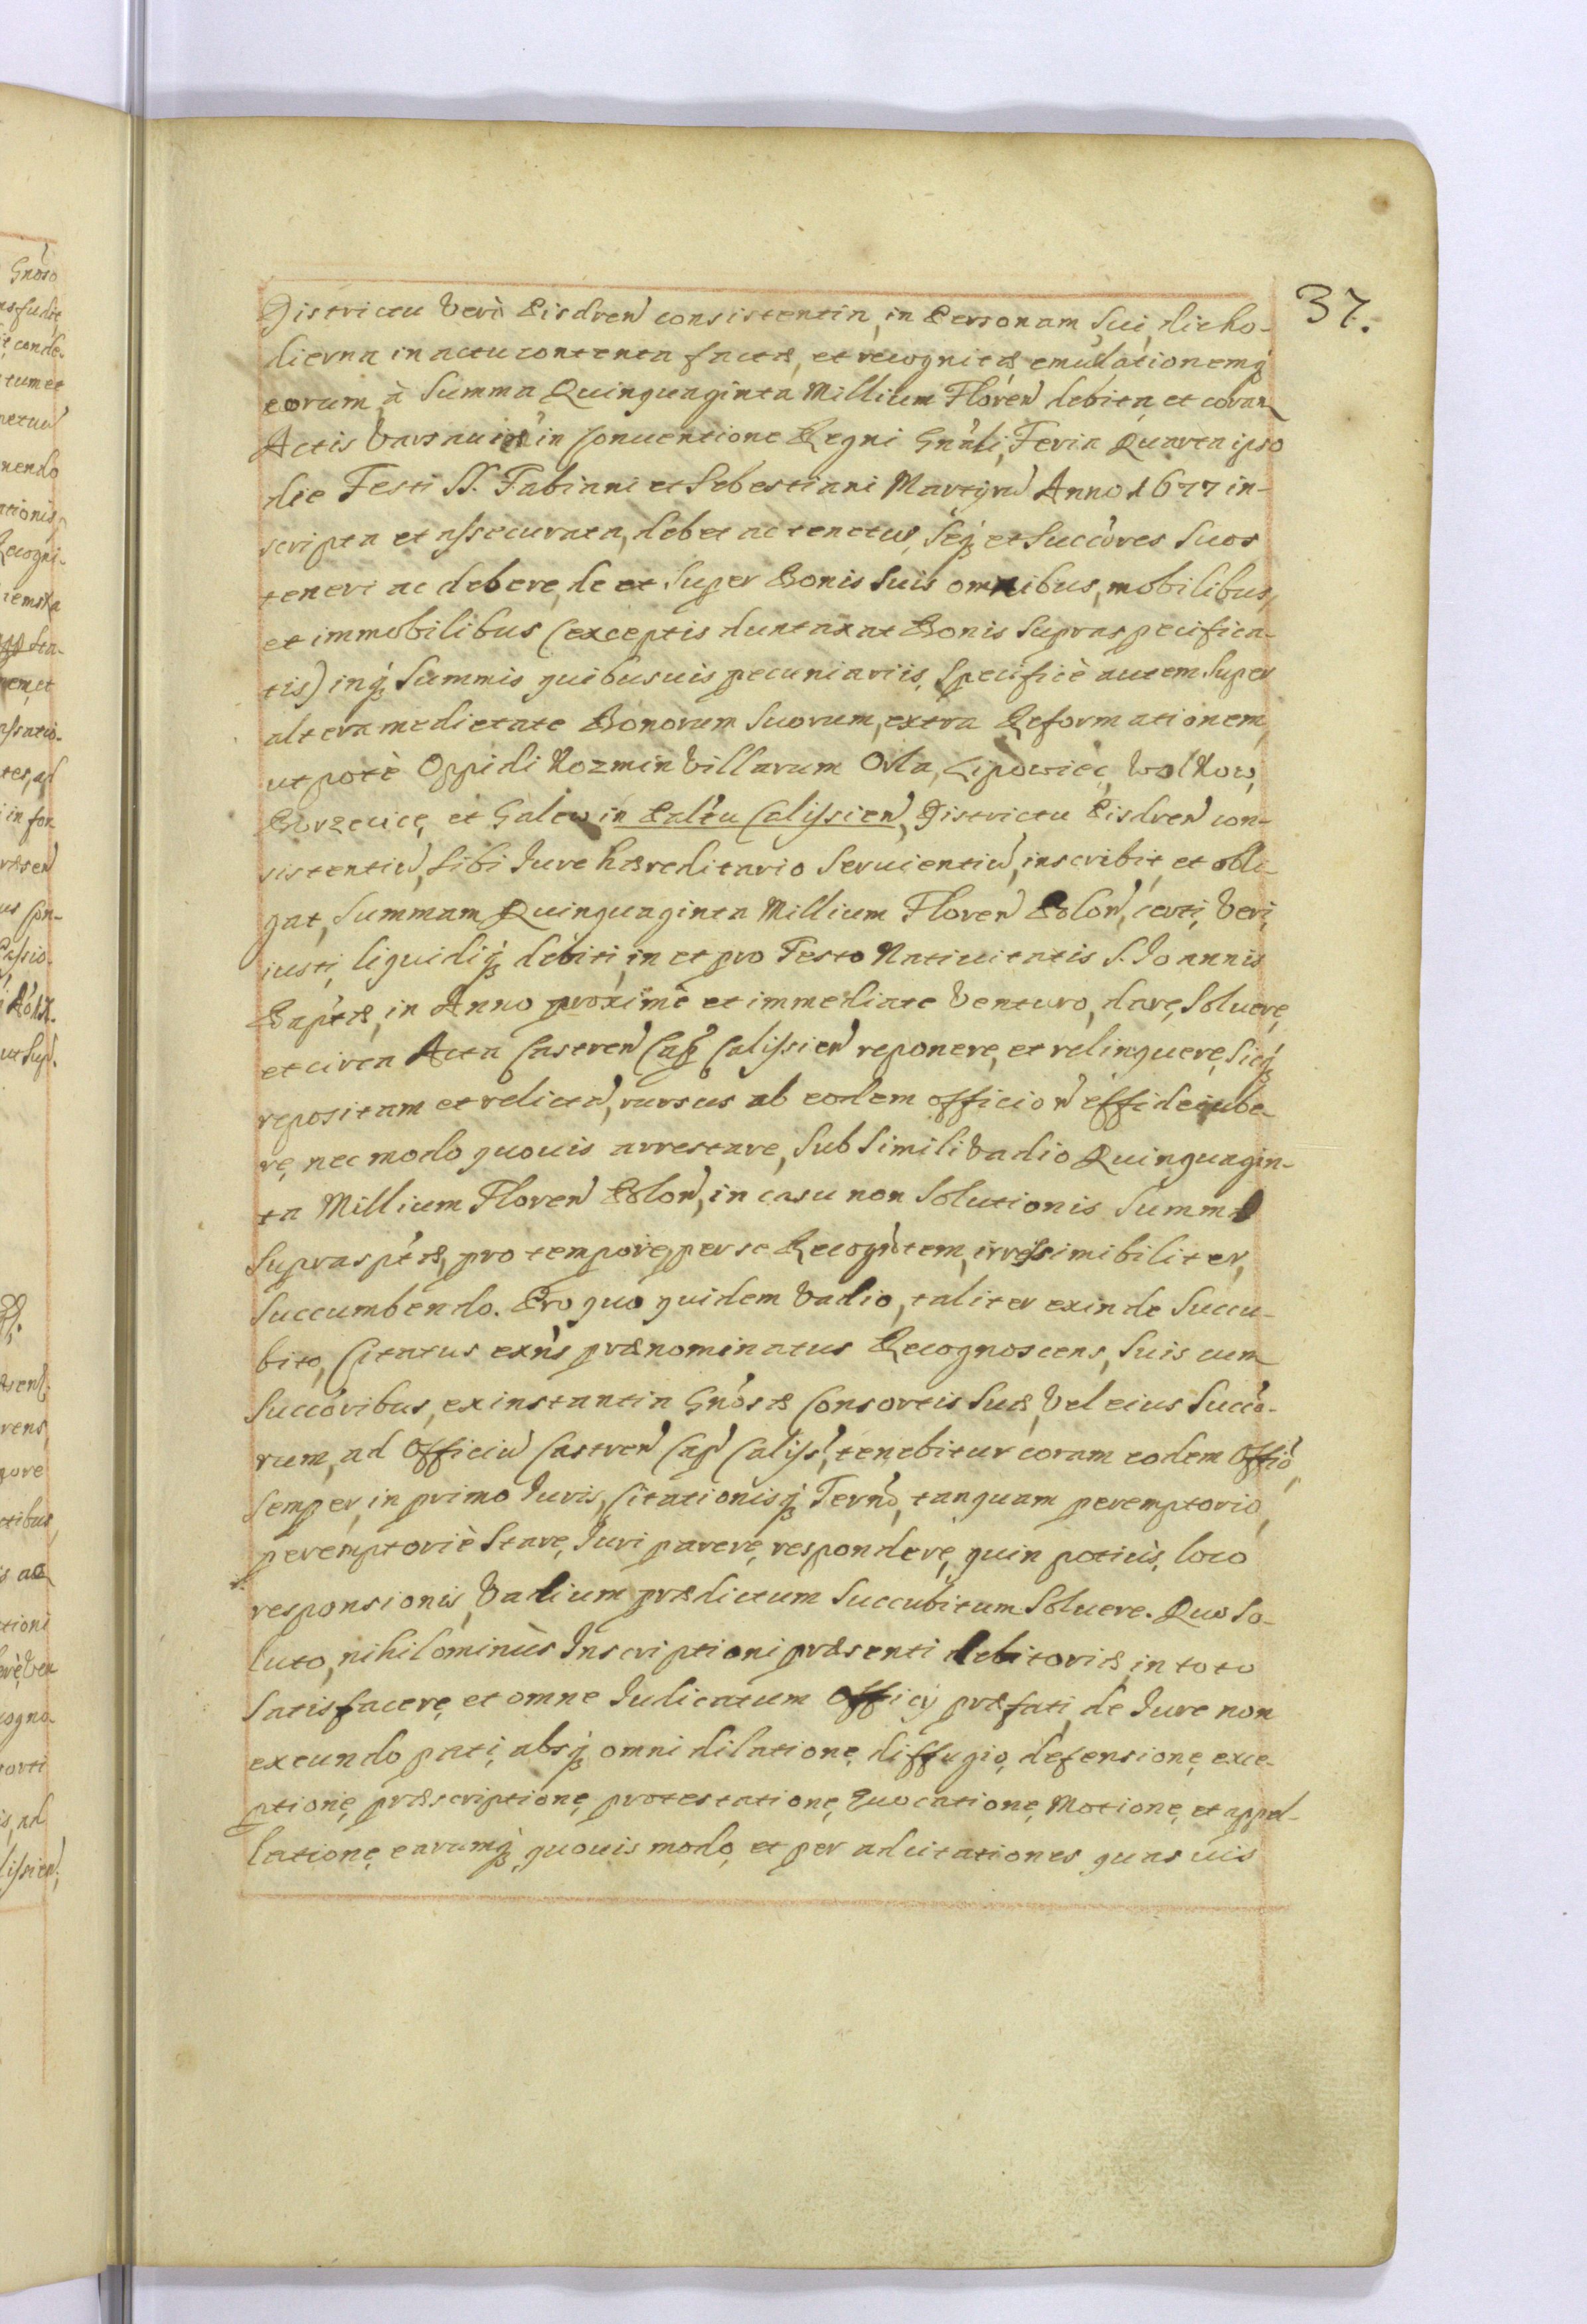 37.
Districtu Verò Pisdren consistentia, in Personam Sui, die ho-
dierna in actu contenta factæ, et recognitæ emundationemq́
eorum, à Summa Quinquaginta Millium Floren debita, et coram
Actis Varsauien in Conuentione Regni Gnáli, Feria Quarta ipso
die Festi SS. Fabiani et Sebestiani Martyru Anno 1677 in-
scripta et assecurata, debet ac tenetur, Seq́ et Succóres Suos
teneri ac debere, de et Super Bonis Suis omnibus, mobilibus,
et immobilibus (exceptis duntaxat Bonis Supraspecifica-
tis) inq́ Summis quibusuis pecuniariis, Specificè autem Super
altera medietate Bonorum Suorum, extra Reformationem,
utpotè Oppidi Kozmin Villarum Orla, Lipowiec, Wolkow,
Borzecice, et Galew in Paltu Calissien, Districtu Pisdren con-
sistentiu, Sibi Iure hæreditario Seruientiu, inscribit, et obli-
gat, Summam Quinquaginta Millium Floren Polon, certi, Veri,
iusti, liquidiq́ debiti, in et pro Festo Natiuitatis S. Joannis
Baptæ, in Anno proximè et immediate Venturo, dare, Soluere,
et circa Acta Castren Cap Calissien reponere, et relinquere, Sicq́
repositam et relictu, rursus ab eodem officio effideiube-
re, nec modo quouis arrestare, Sub Simili Vadio Quinquagin-
ta Millium Floren Polon, in casu non Solutionis Summæ
Supraspctæ, pro tempore, per se Recogntem, irressimibiliter,
Succumbendo. Pro quo quidem Vadio, taliter exinde Succu-
bito, Citatus exńs prænominatus Recognoscens, Suis cum
Succóribus, ex instantia Gnósæ Consortis Suæ, Vel eius Succó-
rum, ad Officiu Castren Cap Caliss, tenebitur coram eodem Offio,
Semper, in primo Iuris, Citationisq́ Termo, tanquam peremptorio,
peremptoriè Stare, Iuri parere, respondere, quin potiùs, loco
responsionis, Vadium prædictum Succubitum Soluere. Quo So-
luto, nihilominùs Inscriptioni præsenti debitoriæ, in toto
Satisfacere, et omne Iudicatum Officij præfati, de Iure non
exeundo pati, absq́ omni dilatione, diffugio, defensione, exce-
ptione, præscriptione, protestatione, Euocatione, Motione, et appel-
latione, earumq́ quouis modo, et per aducitationes quasuis